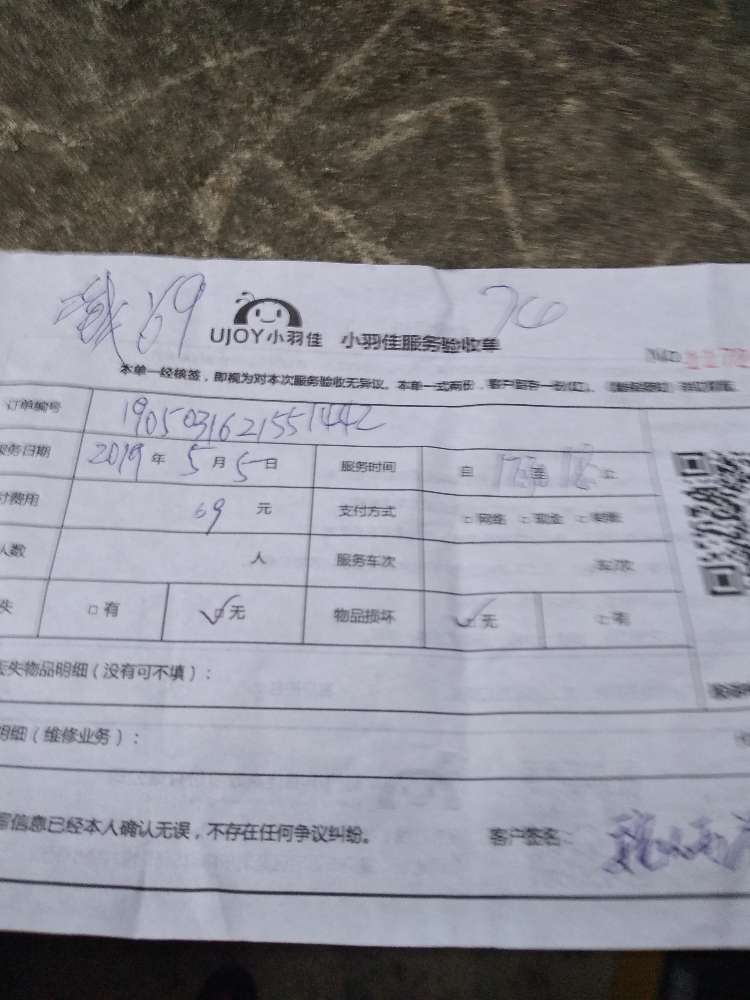 69
UJOY小羽佳 小羽佳服务验收单
本单一经核签，即视为对本次服务验收无异议。本单一式两份，客户留存一份
订单编号 1905031621551442
服务日期 2019年5月5日 服务时间 自
计费用 69元 支付方式 □网络 □现金
人数 人 服务车次 车/次
失 □有 ☑无 物品损坏 ☑无 □有
丢失物品明细（没有可不填）：
明细（维修业务）：
信息已经本人确认无误，不存在任何争议纠纷。 客户签名：